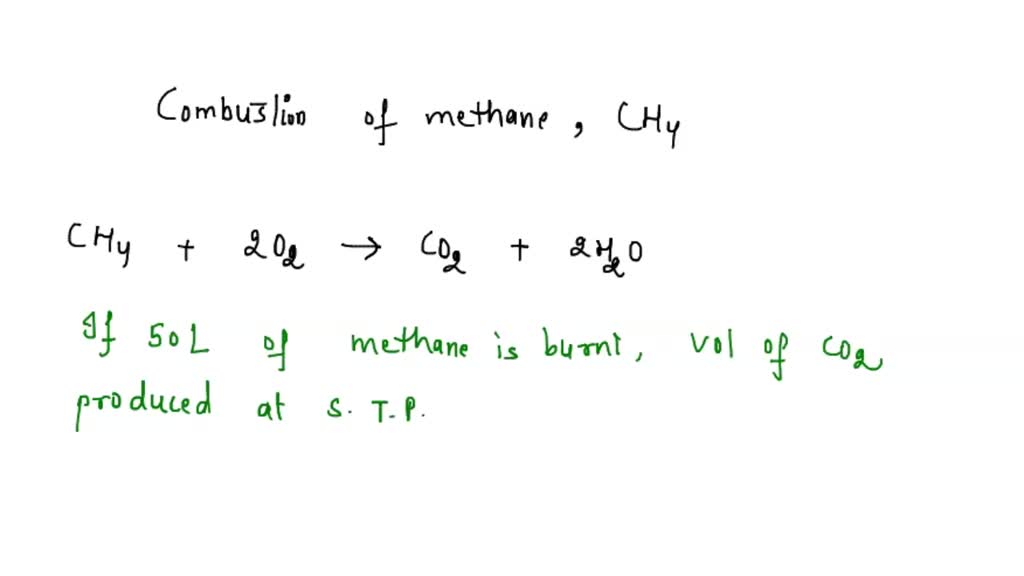 Combustion of methane, CH4
CH4 + 2O2 → CO2 + 2H2O
If 50L of methane is burnt, vol of CO2
produced at S.T.P.